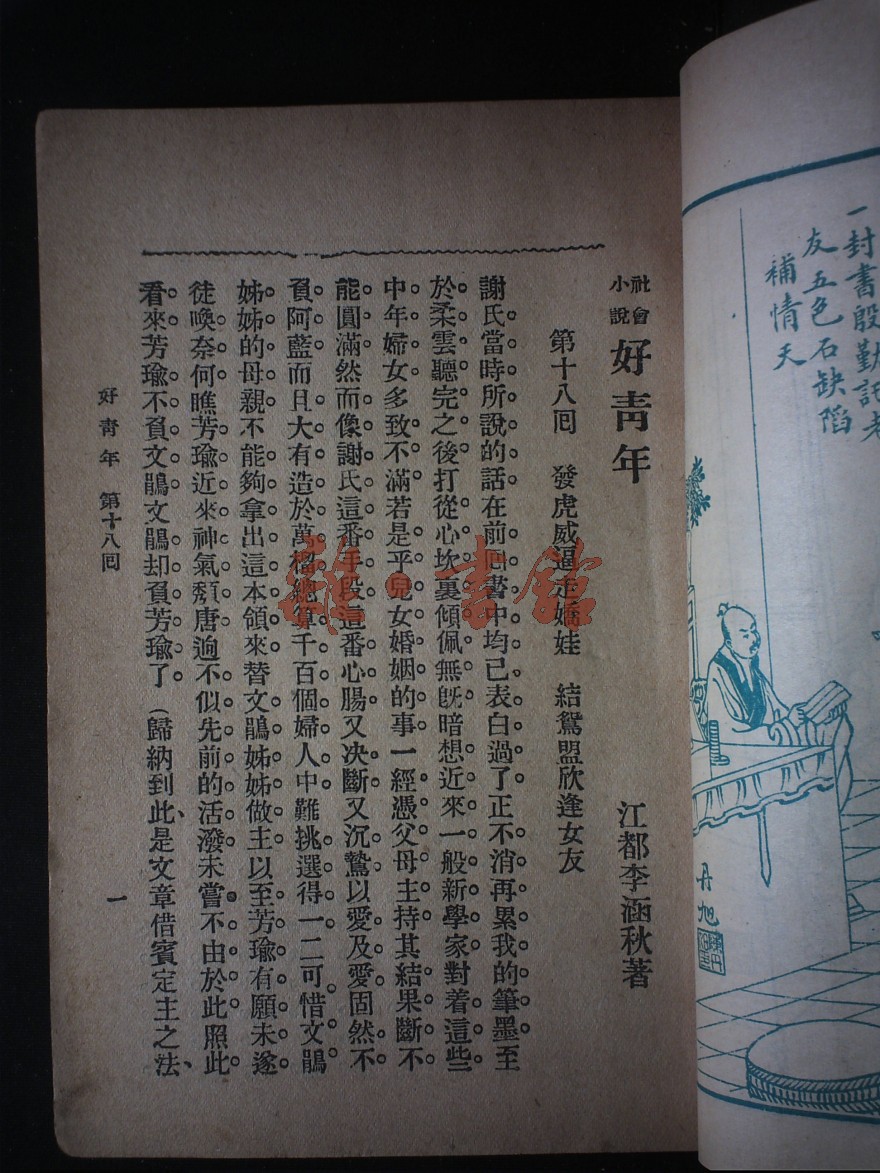 一封書殷勤託老
友五色石缺陷
補情天
丹旭
社會
小說
好青年
江都李涵秋著
第十八囘 發虎威逼走嬌娃 結鴛盟欣逢女友
謝氏當時所說的話在前囘書中均已表白過了正不消再累我的筆墨至
於柔雲聽完之後打從心坎裏傾佩無旣暗想近來一般新學家對着這些
中年婦女多致不滿若是平兒女婚姻的事一經憑父母主持其結果斷不
能圓滿然而像謝氏這番手段這番心腸又決斷又沉鷙以愛及愛固然不
負阿藍而且大有造於萬榴總算千百個婦人中難挑選得一二可惜文鵑
姊姊的母親不能夠拿出這本領來替文鵑姊姊做主以至芳瑜有願未遂
徒喚奈何瞧芳瑜近來神氣頹唐逈不似先前的活潑未嘗不由於此照此
看來芳瑜不負文鵑文鵑却負芳瑜了（歸納到此、是文章借賓定主之法、
好青年 第十八囘
一
雜·書館